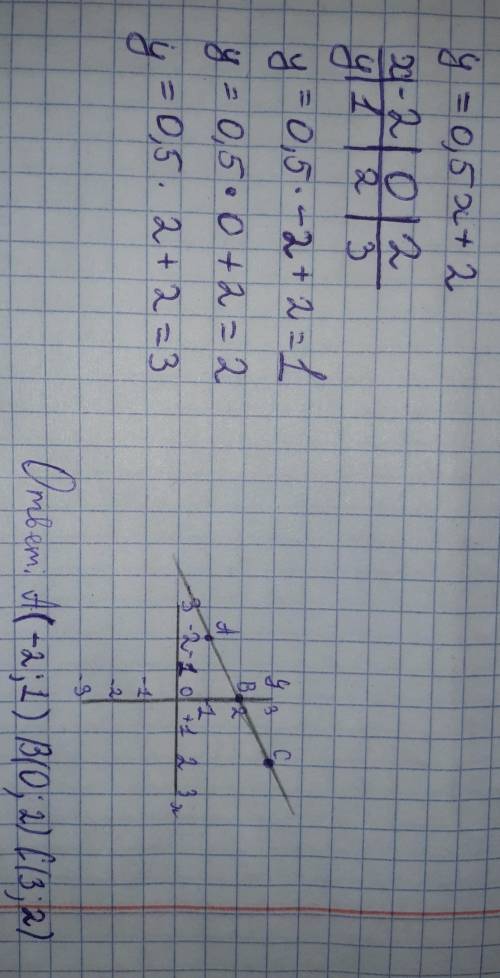 y = 0,5x + 2
x -2 | 0 | 2
y 1 | 2 | 3
y = 0,5 · -2 + 2 = 1
y = 0,5 · 0 + 2 = 2
y = 0,5 · 2 + 2 = 3
y
3
C
B
2
A
1
-3 -2 -1 0 +1 2 3 x
-1
-2
-3
Ответ: A(-2;1) B(0;2) C(3;2)